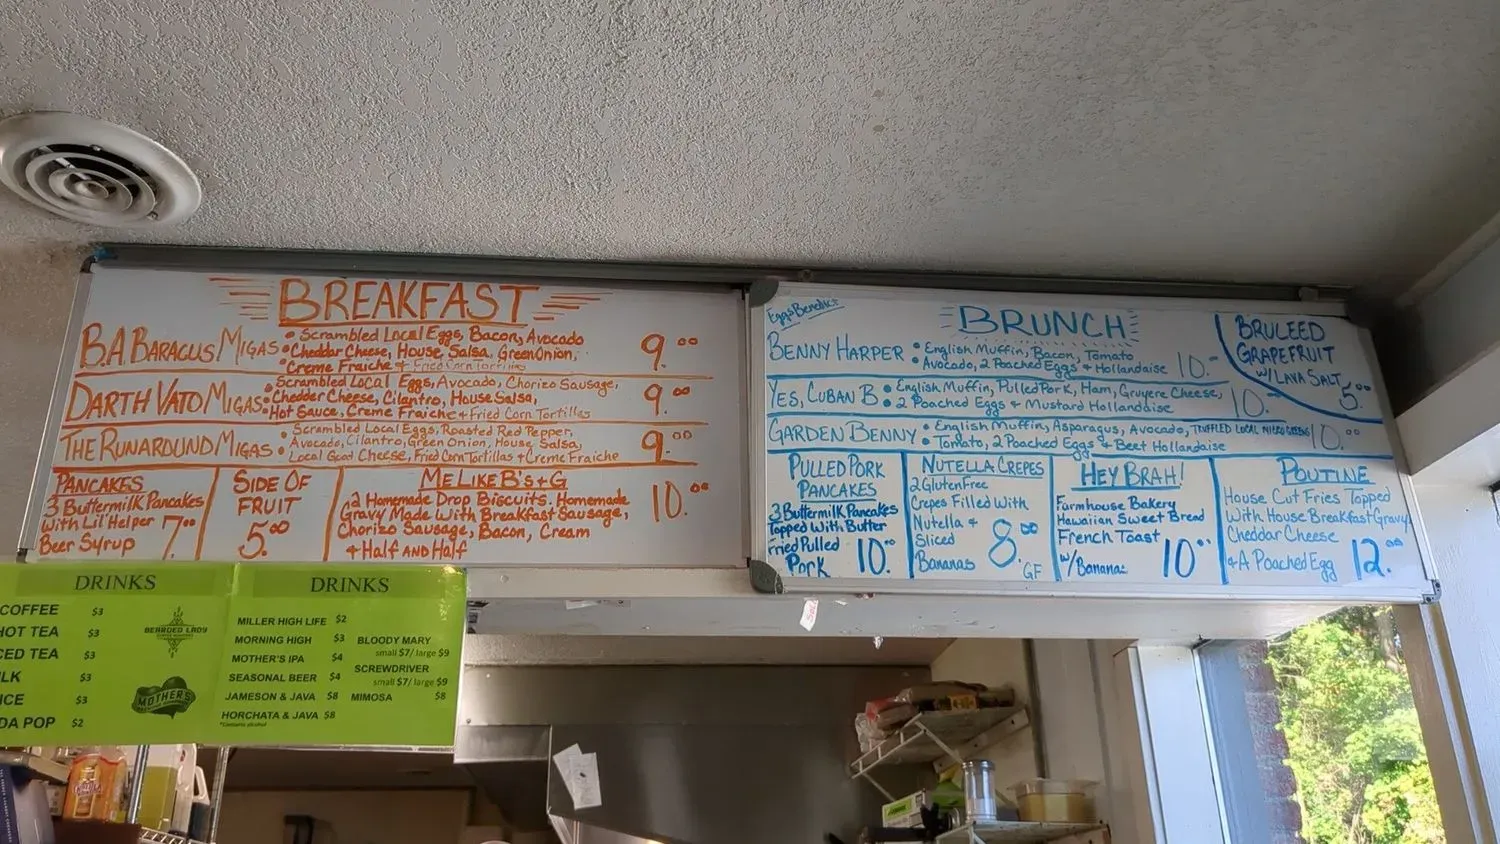 BREAKFAST
B.A. BARACUS MIGAS
• Scrambled Local Eggs, Bacon, Avocado
• Cheddar Cheese, House Salsa, Green Onion,
• Creme Fraiche + Fried Corn Tortillas
9.00
DARTH VATO MIGAS
• Scrambled Local Eggs, Avocado, Chorizo Sausage,
• Chedder Cheese, Cilantro, House Salsa,
• Hot Sauce, Creme Fraiche + Fried Corn Tortillas
9.00
THE RUNAROUND MIGAS
• Scrambled Local Eggs, Roasted Red Pepper,
Avocado, Cilantro, Green Onion, House Salsa,
Local Goat Cheese, Fried Corn Tortillas + Creme Fraiche
9.00
PANCAKES
3 Buttermilk Pancakes
With Lil' Helper
Beer Syrup
7.00
SIDE OF
FRUIT
5.00
ME LIKE B's + G
2 Homemade Drop Biscuits. Homemade
Gravy Made With Breakfast Sausage,
Chorizo Sausage, Bacon, Cream
+ Half AND Half
10.00
Eggs Benedict
BRUNCH
BENNY HARPER
• English Muffin, Bacon, Tomato
• Avocado, 2 Poached Eggs + Hollandaise
10.
YES, CUBAN B
• English Muffin, Pulled Pork, Ham, Gruyere Cheese,
• 2 Poached Eggs + Mustard Hollandaise
10.
GARDEN BENNY
• English Muffin, Asparagus, Avocado, TRUFFLED LOCAL MICRO GREENS
• Tomato, 2 Poached Eggs + Beet Hollandaise
10.00
BRULEED
GRAPEFRUIT
W/ LAVA SALT
5.00
PULLED PORK
PANCAKES
3 Buttermilk Pancakes
Topped With Butter
Fried Pulled
Pork
10.00
NUTELLA CREPES
2 Gluten Free
Crepes Filled With
Nutella +
Sliced
Bananas
8.00
GF
HEY BRAH!
Farmhouse Bakery
Hawaiian Sweet Bread
French Toast
w/ Bananas
10
POUTINE
House Cut Fries Topped
With House Breakfast Gravy,
Cheddar Cheese
+ A Poached Egg
12.00
DRINKS
COFFEE $3
HOT TEA $3
CED TEA $3
LK $3
ICE $3
DA POP $2
BEARDED LADY
MOTHERS
DRINKS
MILLER HIGH LIFE $2
MORNING HIGH $3
MOTHER'S IPA $4
SEASONAL BEER $4
JAMESON & JAVA $8
HORCHATA & JAVA $8
*Contains alcohol
BLOODY MARY
small $7/ large $9
SCREWDRIVER
small $7/ large $9
MIMOSA $8